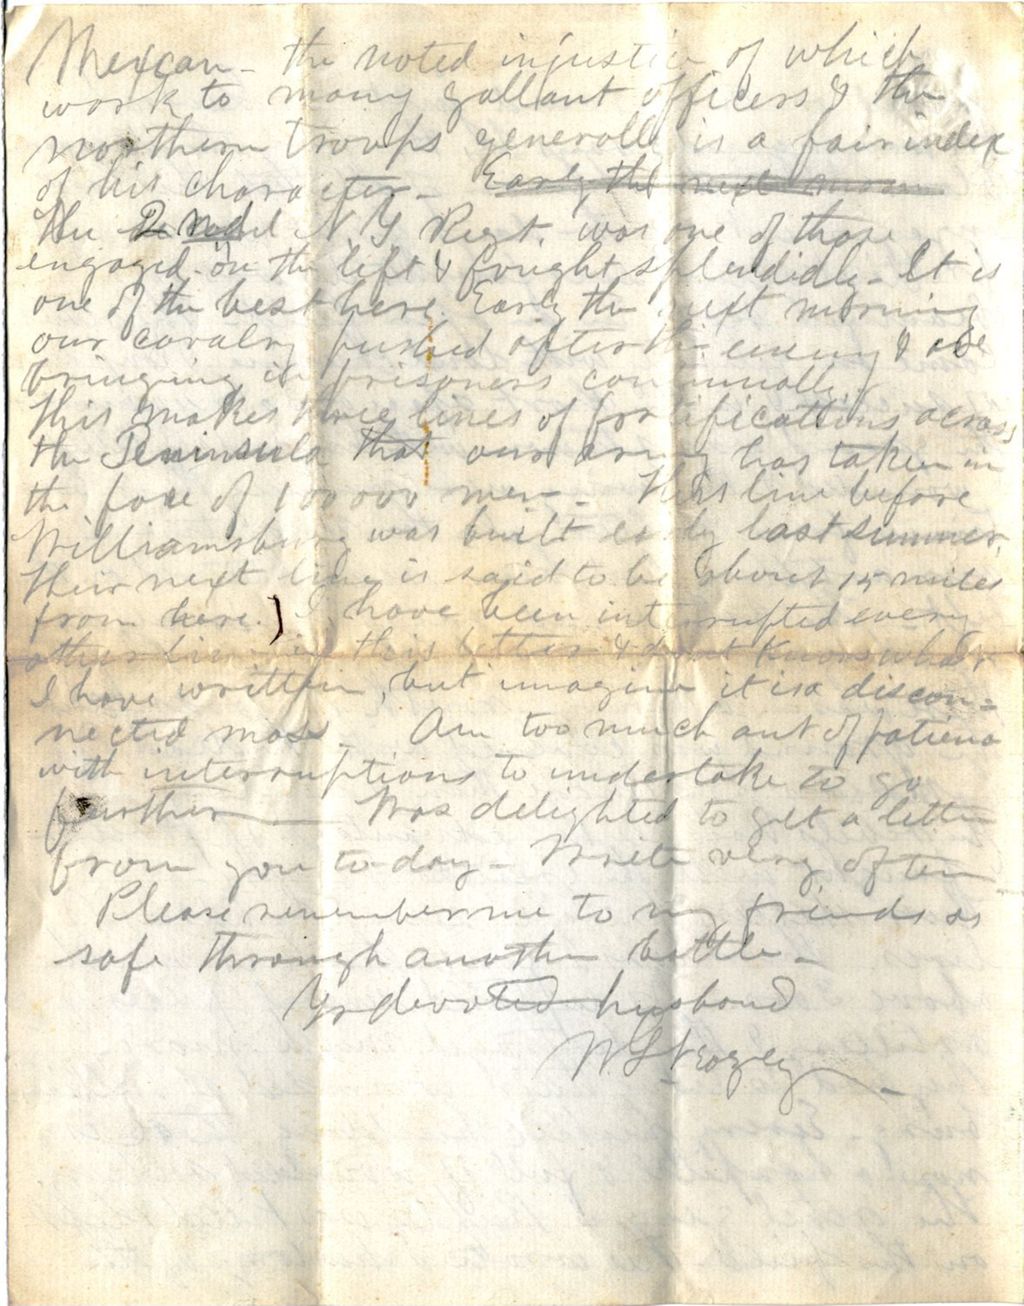 Mexican - the noted injustice of which
work to many gallant officers & the
northern troops generally is a fair index
of his character - Early the next morn
The 2nd N Y Regt. was one of those
engaged on the left & fought splendidly - It is
one of the best here. Early the next morning
our cavalry pushed after the enemy & are
bringing in prisoners continually
This makes three lines of fortifications across
the Peninsula that our army has taken in
the face of 100000 men - This line before
Williamsburg was built early last summer,
their next line is said to be about 15 miles
from here. ) I have been interrupted every
other line in this letter & dont know what
I have written, but imagine it is a discon=
nected mass. Am too much out of patience
with interruptions to undertake to go
further — Was delighted to get a letter
from you to-day - Write very often
Please remember me to my friends as
safe through another battle -
Yr devoted husband